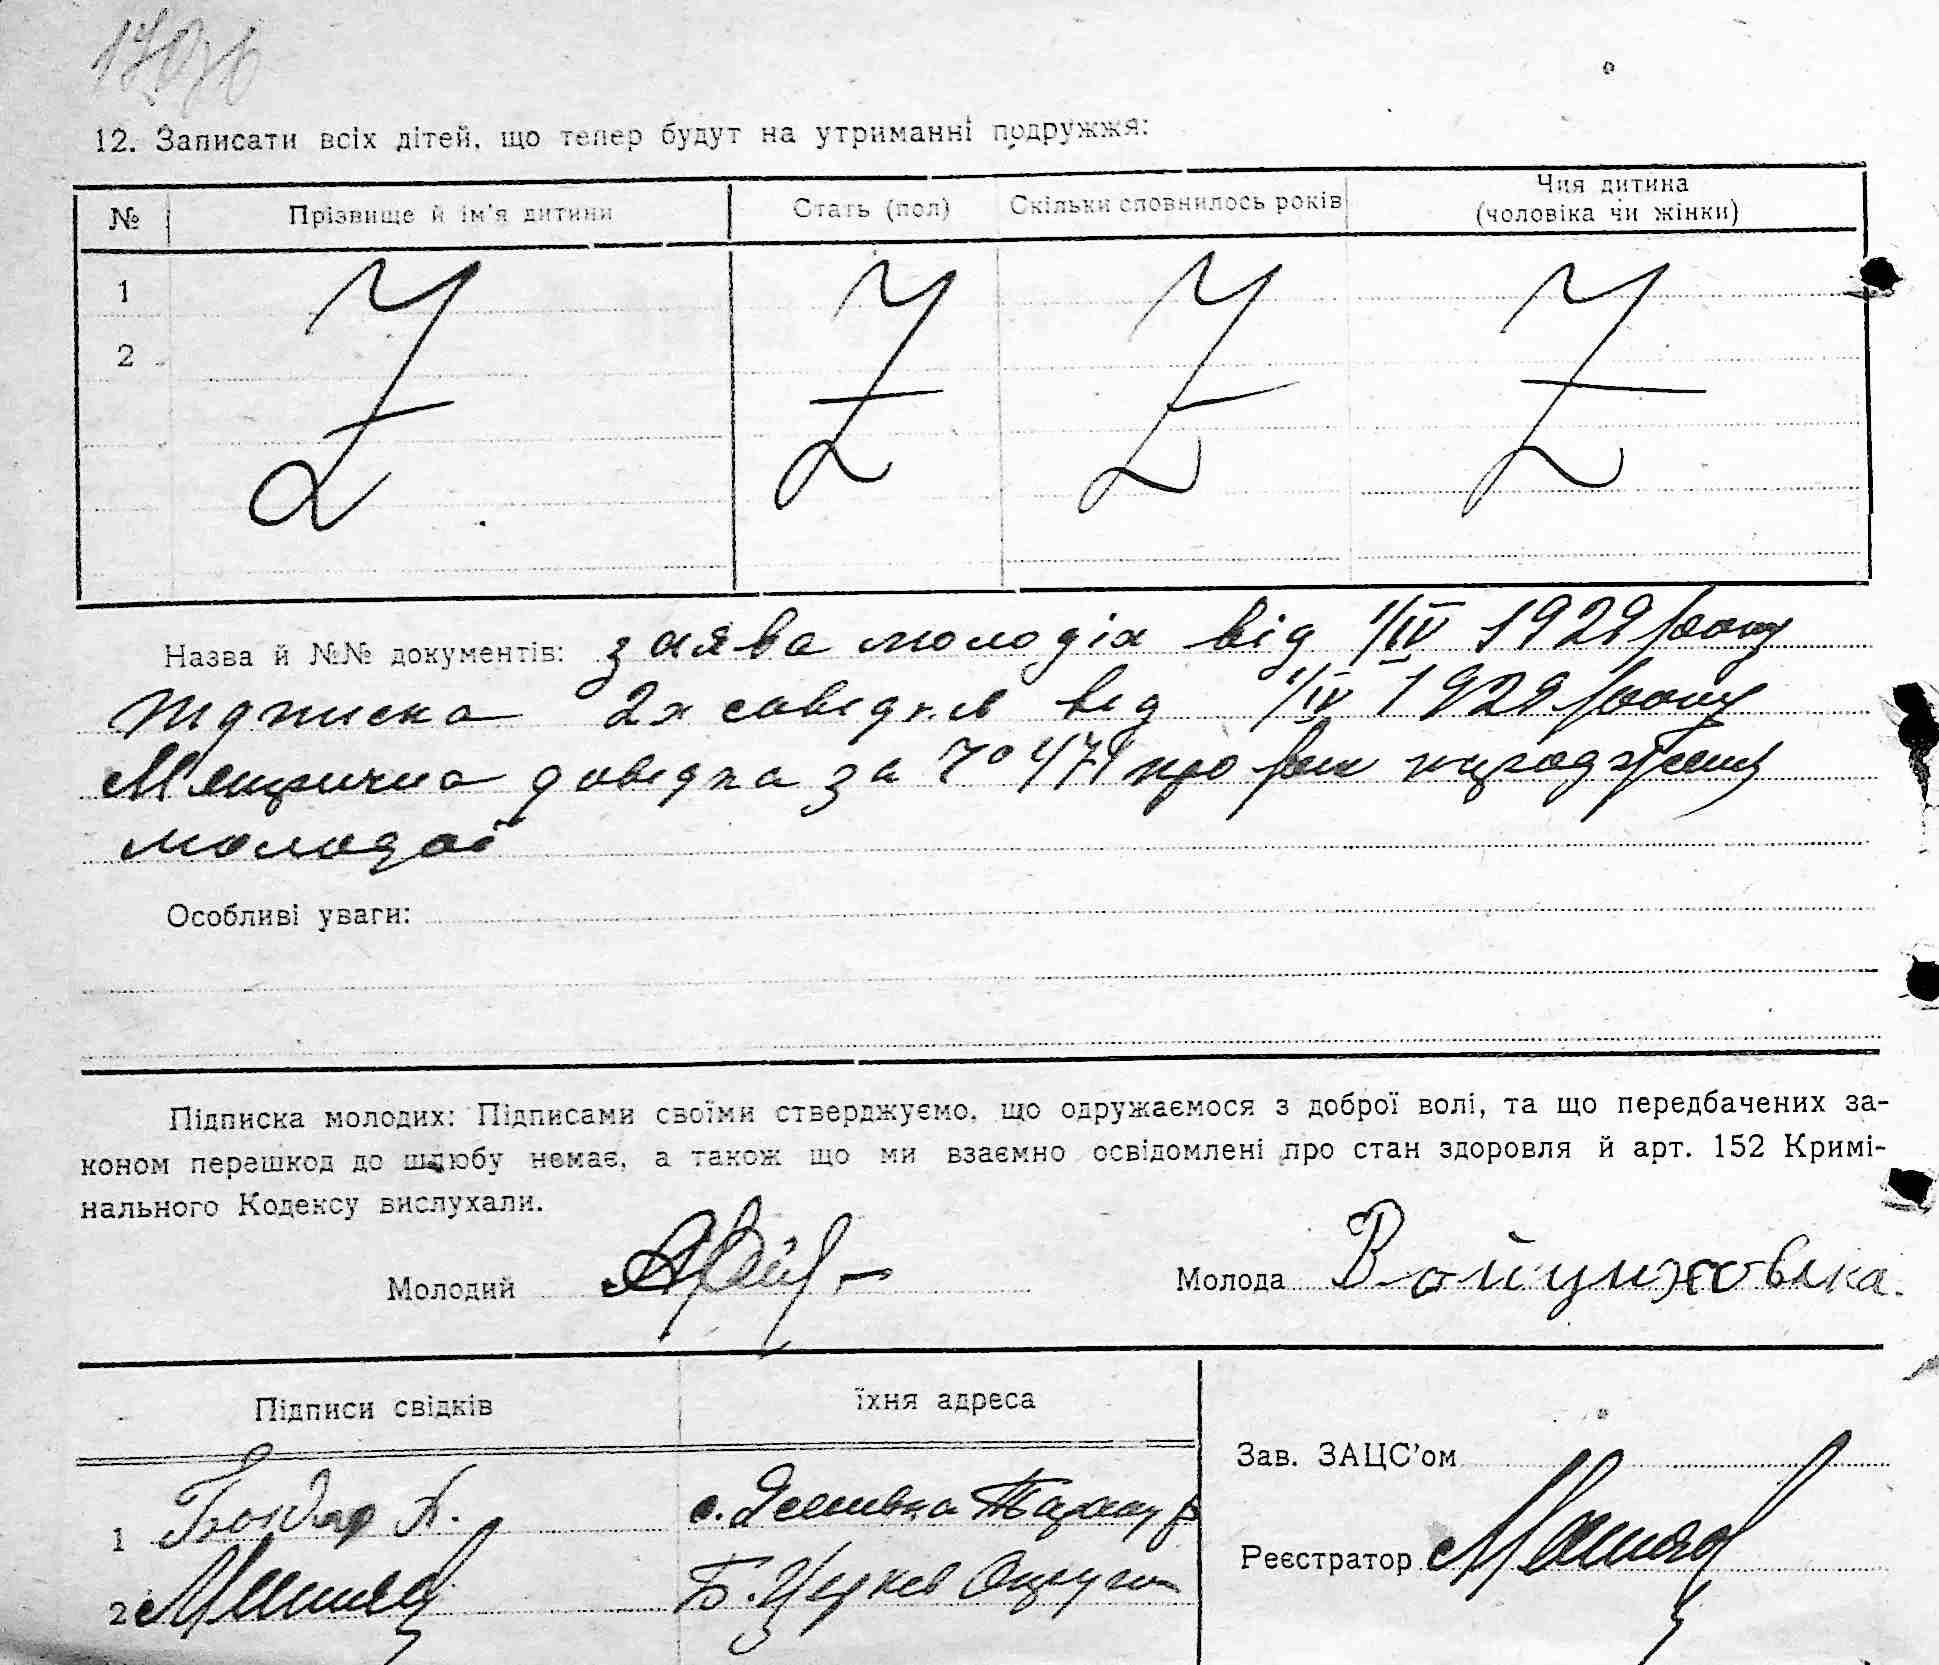 12. Записати всіх дітей, що тепер будут на утриманні подружжя:
№ Прізвище й ім'я дитини Стать (пол) Скільки сповнилось років Чия дитина (чоловіка чи жінки)
1
2
Назва й №№ документів: заява молодіх від 1/IV 1929 року
підписка 2х свідків від 1/IV 1929 року
Метрична довідка за № 474 про рік народження
молодої
Особливі уваги:
Підписка молодих: Підписами своїми стверджуємо, що одружаємося з доброї волі, та що передбачених за-
коном перешкод до шлюбу немає, а також що ми взаємно освідомлені про стан здоровля й арт. 152 Кримі-
нального Кодексу вислухали.
Молодий Молода Войциховська.
Підписи свідків їхня адреса
Зав. ЗАЦС'ом
1 Бондар А. с.
Реєстратор
2 Б. Церків Округи